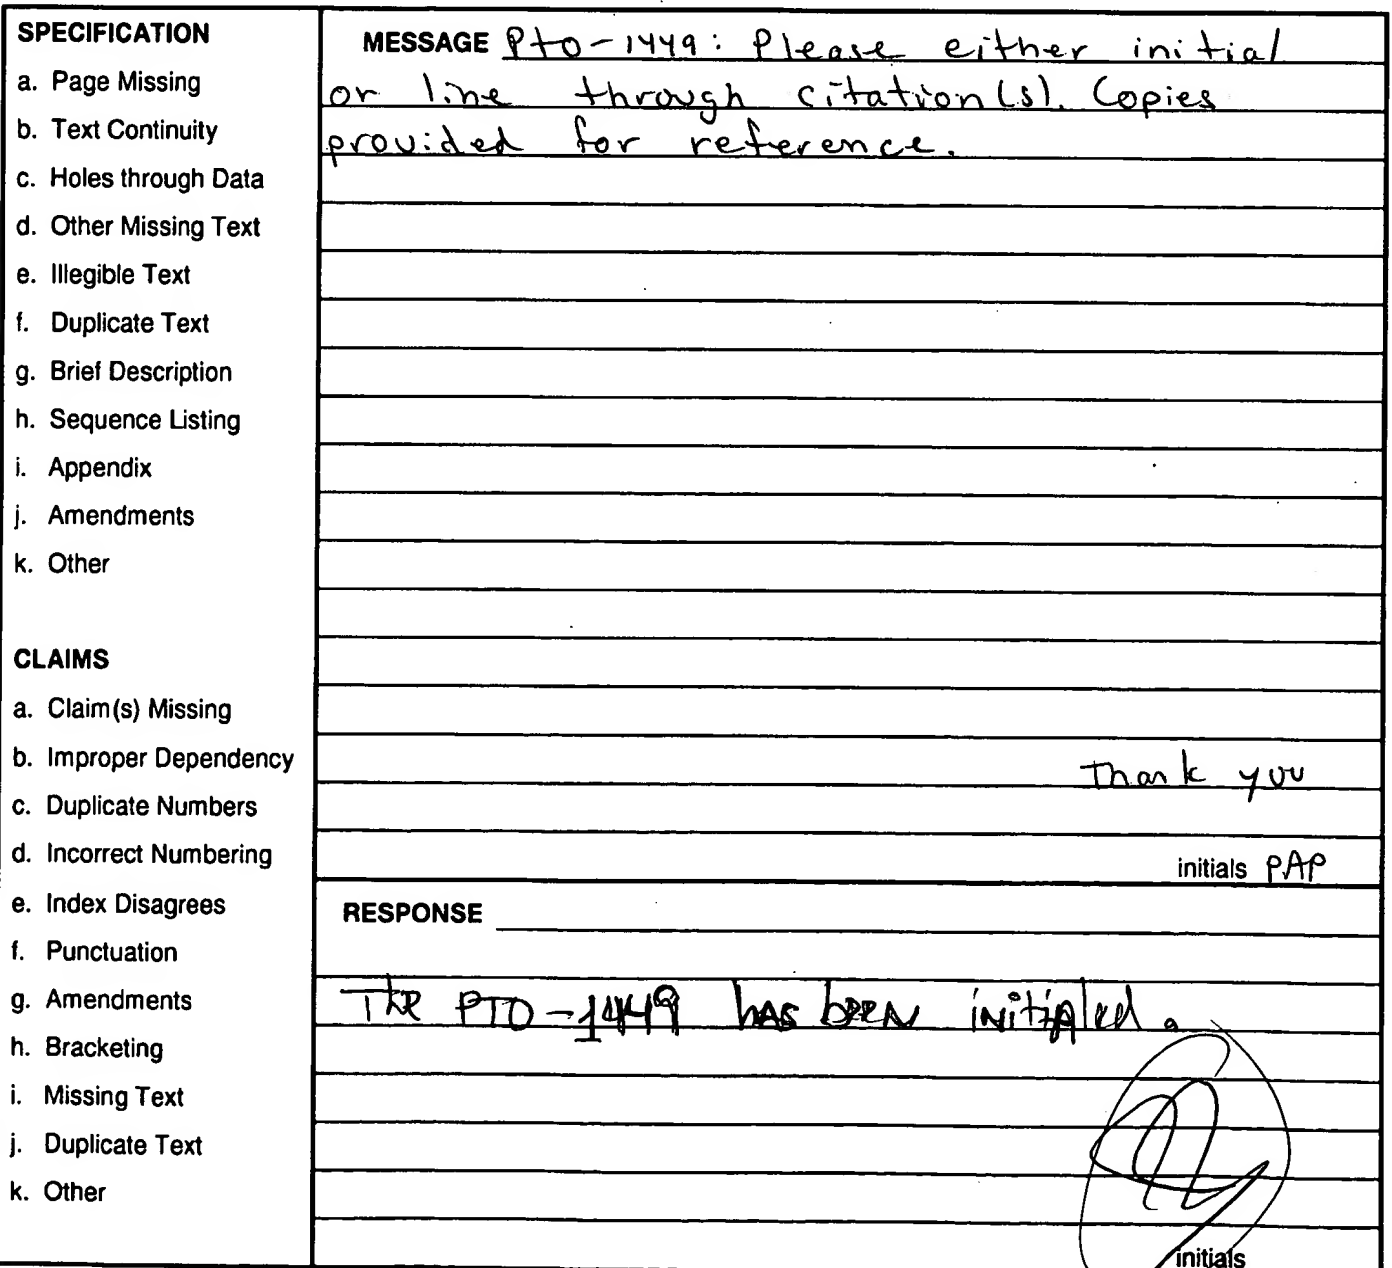 SPECIFICATION
a. Page Missing
b. Text Continuity
c. Holes through Data
d. Other Missing Text
e. Illegible Text
f. Duplicate Text
g. Brief Description
h. Sequence Listing
i. Appendix
j. Amendments
k. Other
CLAIMS
a. Claim(s) Missing
b. Improper Dependency
c. Duplicate Numbers
d. Incorrect Numbering
e. Index Disagrees
f. Punctuation
g. Amendments
h. Bracketing
i. Missing Text
j. Duplicate Text
k. Other
MESSAGE Pto-1449: Please either initial
or line through citation(s). Copies
provided for reference.
Thank you
initials PAP
RESPONSE
The PTO-1449 has been initialed.
initials